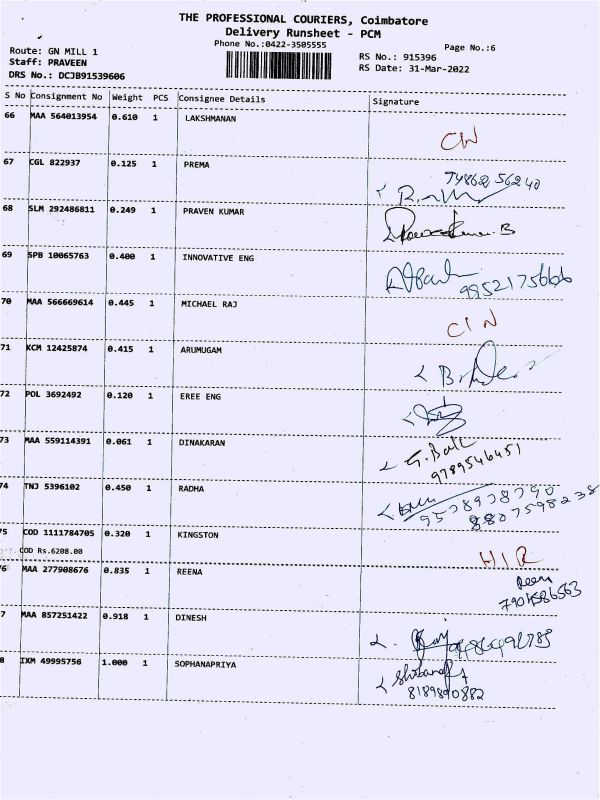 THE PROFESSIONAL COURIERS, Coimbatore
Delivery Runsheet - PCM
Phone No.:0422-3505555
Page No.:6
Route: GN MILL 1
Staff: PRAVEEN
DRS No.: DCJB91539606
RS No.: 915396
RS Date: 31-Mar-2022
S No Consignment No Weight PCS Consignee Details Signature
66 MAA 564013954 0.610 1 LAKSHMANAN
67 CGL 822937 0.125 1 PREMA
68 SLM 292486811 0.249 1 PRAVEN KUMAR
69 SPB 10065763 0.400 1 INNOVATIVE ENG
9952175666
70 MAA 566669614 0.445 1 MICHAEL RAJ
CIN
71 KCM 12425874 0.415 1 ARUMUGAM
72 POL 3692492 0.120 1 EREE ENG
73 MAA 559114391 0.061 1 DINAKARAN
9789546451
74 TNJ 5396102 0.450 1 RADHA
9578978790
8807598238
75 COD 1111784705 0.320 1 KINGSTON
COD Rs.6208.00
HIR
6 MAA 277908676 0.835 1 REENA
Reena
7 MAA 857251422 0.918 1 DINESH
8 IXM 49995756 1.000 1 SOPHANAPRIYA
8189890882